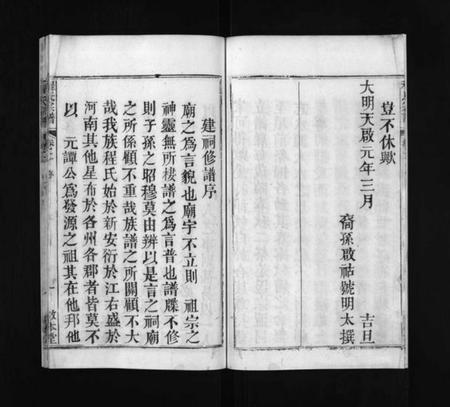 豈不休歟
大明天啟元年三月　吉旦
裔孫啟祜號明太撰
建祠修譜序
廟之為言貌也廟宇不立則　祖宗之
神靈無所棲譜之為言普也譜牒不修
則子孫之昭穆莫由辨以是言之祠廟
之所係顧不重哉族譜之所關顧不大
哉我族程氏始於新安衍於江右盛於
河南其他星布於各州各郡者皆莫不
以　元譚公為發源之祖其在他邦他